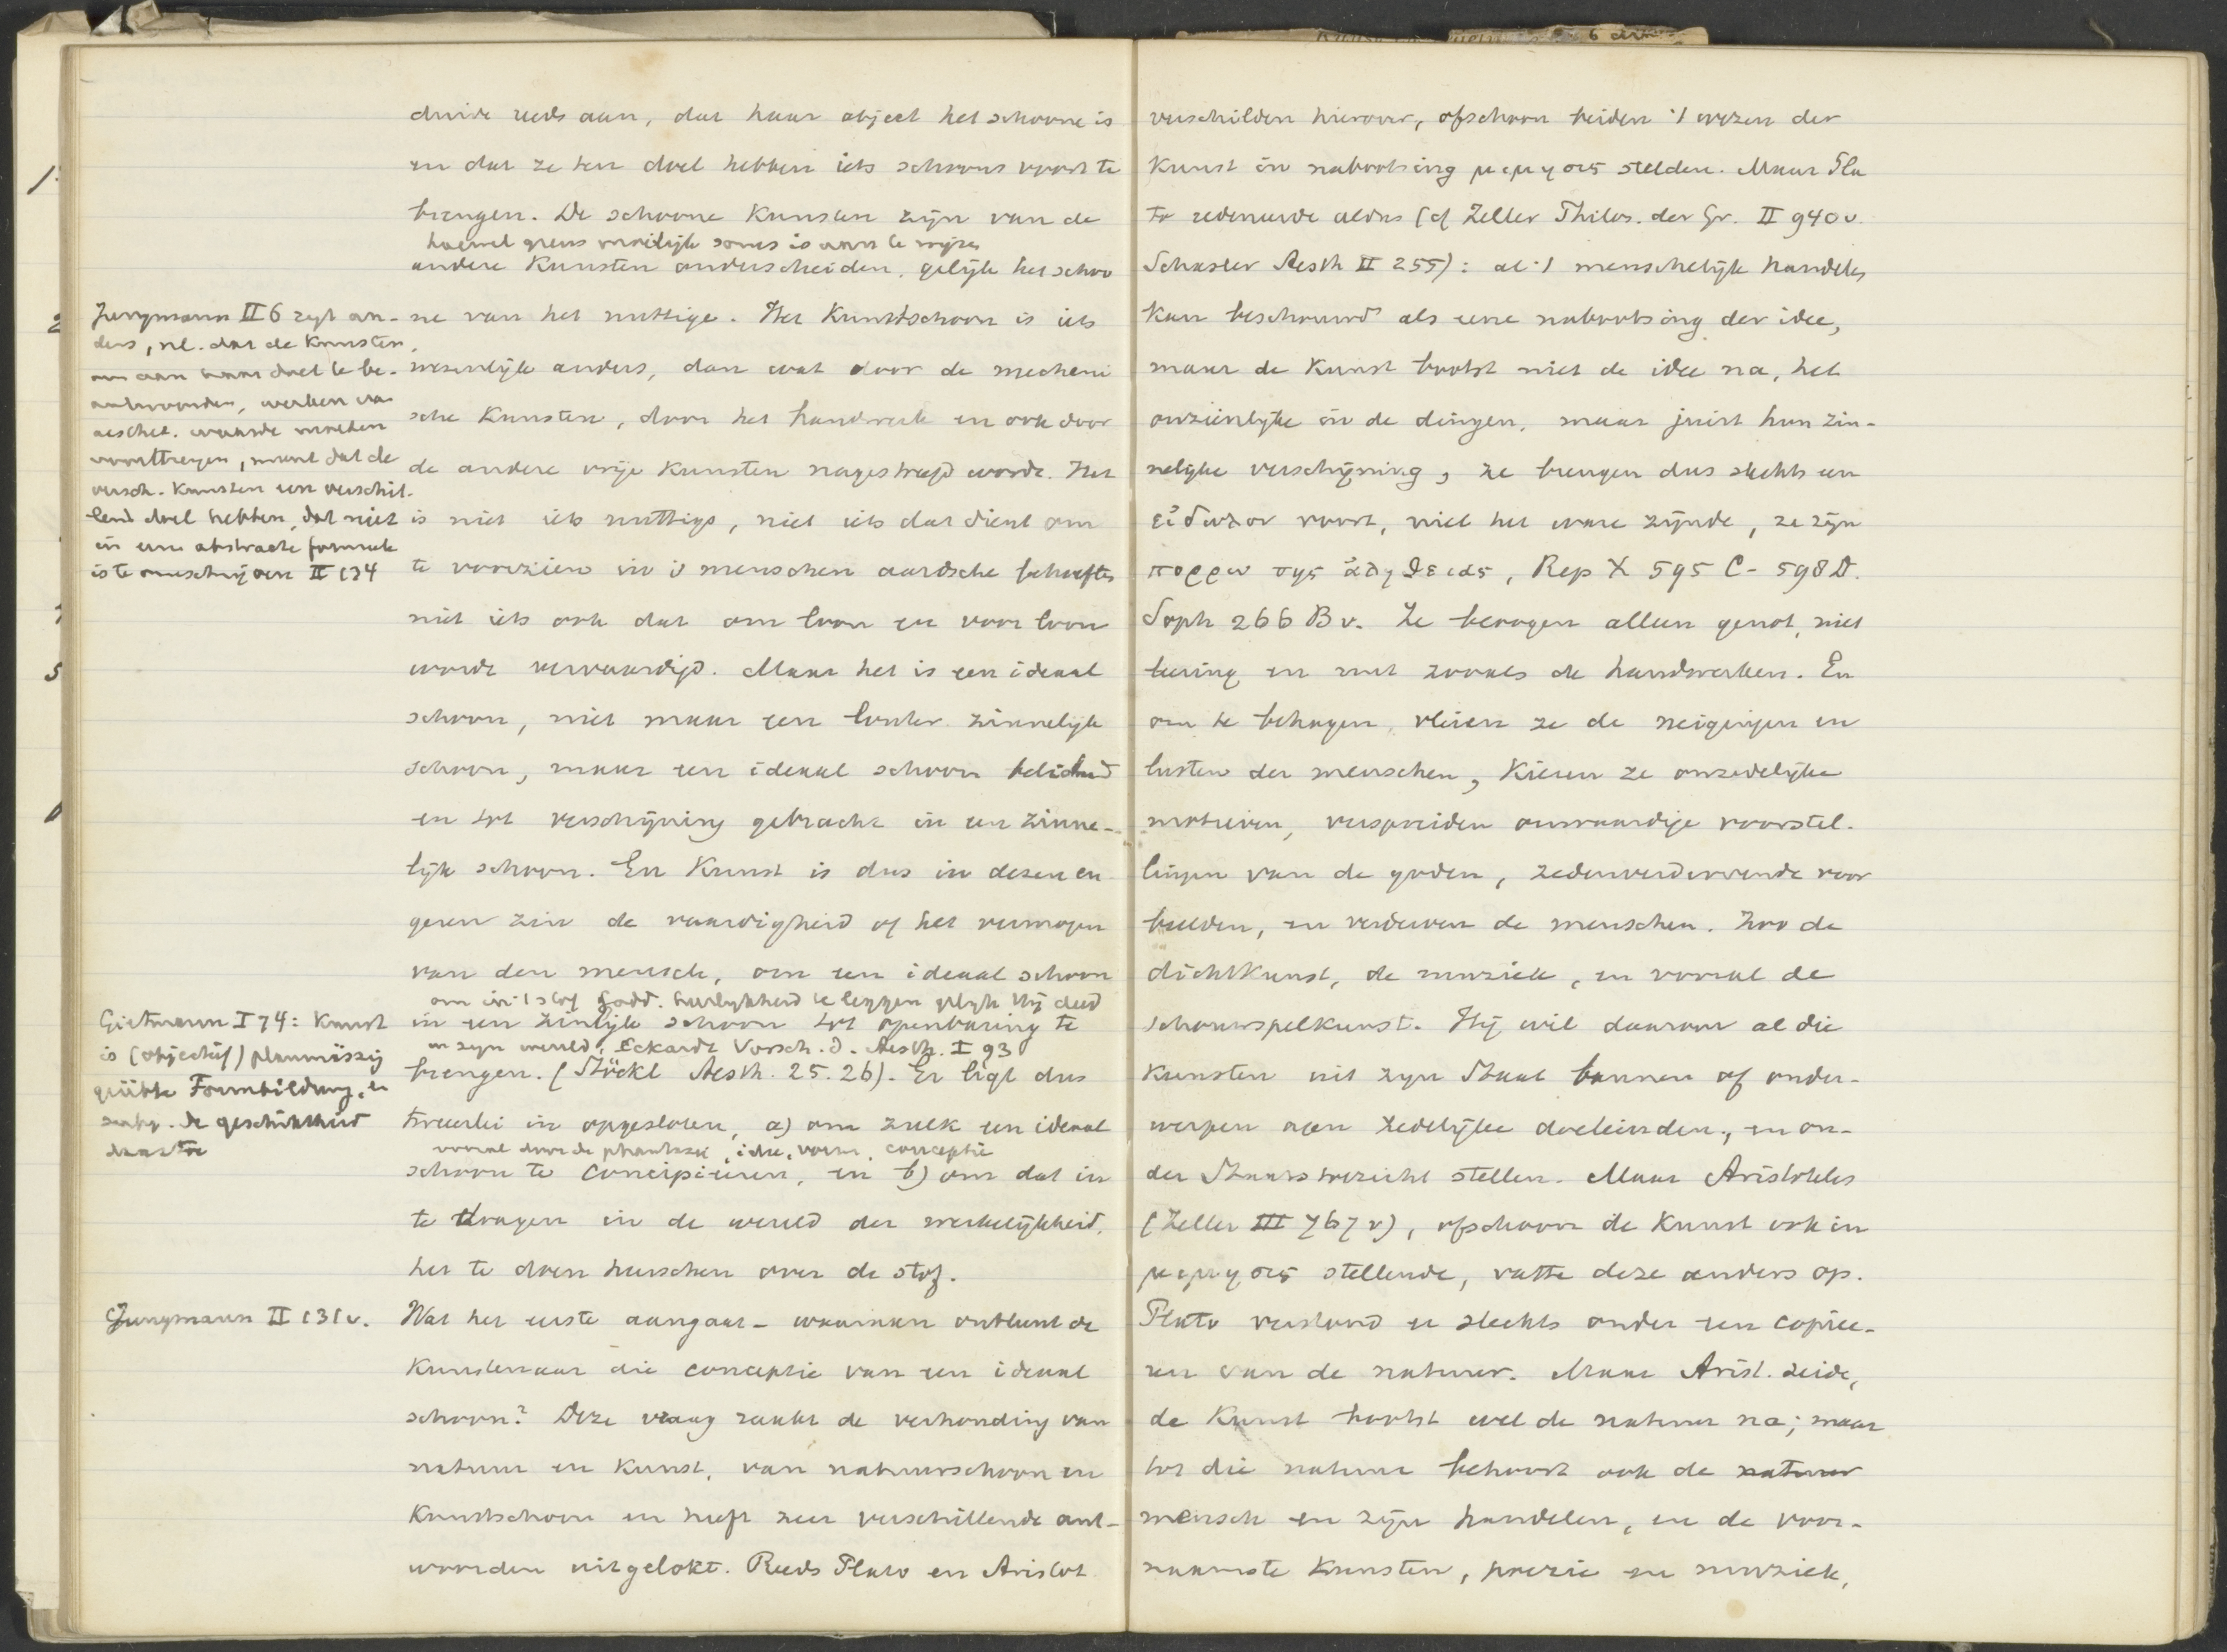 duidt reeds aan, dat haar object het schoone is
en dat ze ten doel hebben iets schoons voort te
brengen. De schoone Kunsten zijn van de
hoewel grens moeilijk soms is aan te wijzen
andere Kunsten onderscheiden, gelijk het schoo
ne van het nuttige. Het Kunstschoon is iets
wezenlijk anders, dan wat door de mechani
sche Kunsten, door het handwerk en ook door
de andere vrije Kunsten nagestreefd wordt. Het
is niet iets nuttigs, niet iets dat dient om
te voorzien in 's menschen aardsche behoeften
niet iets ook dat om loon en voor loon
wordt vervaardigd. Maar het is een ideaal
schoon, niet maar een louter zinnelijk
schoon, maar een ideaal schoon belichaamd
en tot verschijning gebracht in een zinne-
lijk schoon. En Kunst is dus in dezen en
geren zin de vaardigheid of het vermogen
van den mensch, om een ideaal schoon
om in 't stof Godd. heerlijkheid te leggen gelijk Hij deed
in een zinlijk schoon tot openbaring te
in zijn wereld, Eckardt Vorsch. d. Aesth. I 93
brengen. (Stöckl Aesth. 25.26). Er ligt dus
tweeërlei in opgesloten, a) om zulk een ideaal
vooral door de phantasie, idee, vorm, conceptie
schoon te concipieeren, en b) om dat in
te dragen in de wereld der werkelijkheid,
het te doen heerschen over de stof.
Wat het eerste aangaat - waaraan ontleent de
Kunstenaar die conceptie van een ideaal
schoon? Deze vraag raakt de verhouding van
natuur en Kunst, van natuurschoon en
Kunstschoon en heeft zeer verschillende ant-
woorden uitgelokt. Reeds Plato en Aristot.
Jungmann II 6 zegt an-
ders, nl. dat de Kunsten,
om aan haar doel te be-
antwoorden, werken van
aesthet. waarde moeten
voortbrengen, maar dat de
versch. Kunsten een verschil-
lend doel hebben, dat niet
in een abstracte formule
is te omschrijven II 134
Gietmann I 74: Kunst
is (objectief) planmässig
geübte Formbildung, en
subj. de geschiktheid
daartoe
Jungmann II 131 v.
verschilden hierover, ofschoon beiden 't wezen der
Kunst in nabootsing μιμησις stelden. Maar Pla
to redeneerde aldus (cf Zeller Philos. der Gr. II 940 v.
Schasler Aesth II 255): al 't menschelijk handelen
kan beschouwd als eene nabootsing der idee,
maar de Kunst bootst niet de idee na, het
onzienlijke in de dingen, maar juist hun zin-
nelijke verschijning, ze brengen dus slechts een
εἰδωλον voort, niet het ware zijnde, ze zijn
πορρω της ἀληθειας, Rep X 595 C - 598 D.
Soph 266 B v. Ze beoogen alleen genot, niet
leering en nut zooals de handwerken. En
om te behagen, vleien ze de neigingen en
lusten der menschen, kiezen ze onzedelijke
motieven, verspreiden onwaardige voorstel-
lingen van de goden, zedenverdervende voor
beelden, en verderven de menschen. Zoo de
dichtkunst, de muziek, en vooral de
schouwspelkunst. Hij wil daarom al die
Kunsten uit zijn Staat bannen of onder-
werpen aan zedelijke doeleinden, en on-
der Staatstoezicht stellen. Maar Aristoteles
(Zeller III 767 v), ofschoon de Kunst ook in
μιμησις stellende, vatte deze anders op.
Plato verstond er slechts onder een copiee-
ren van de natuur. Maar Arist. zeide,
de Kunst bootst wel de natuur na; maar
tot die natuur behoort ook de natuur
mensch en zijn handelen, en de voor-
naamste Kunsten, poezie en muziek,